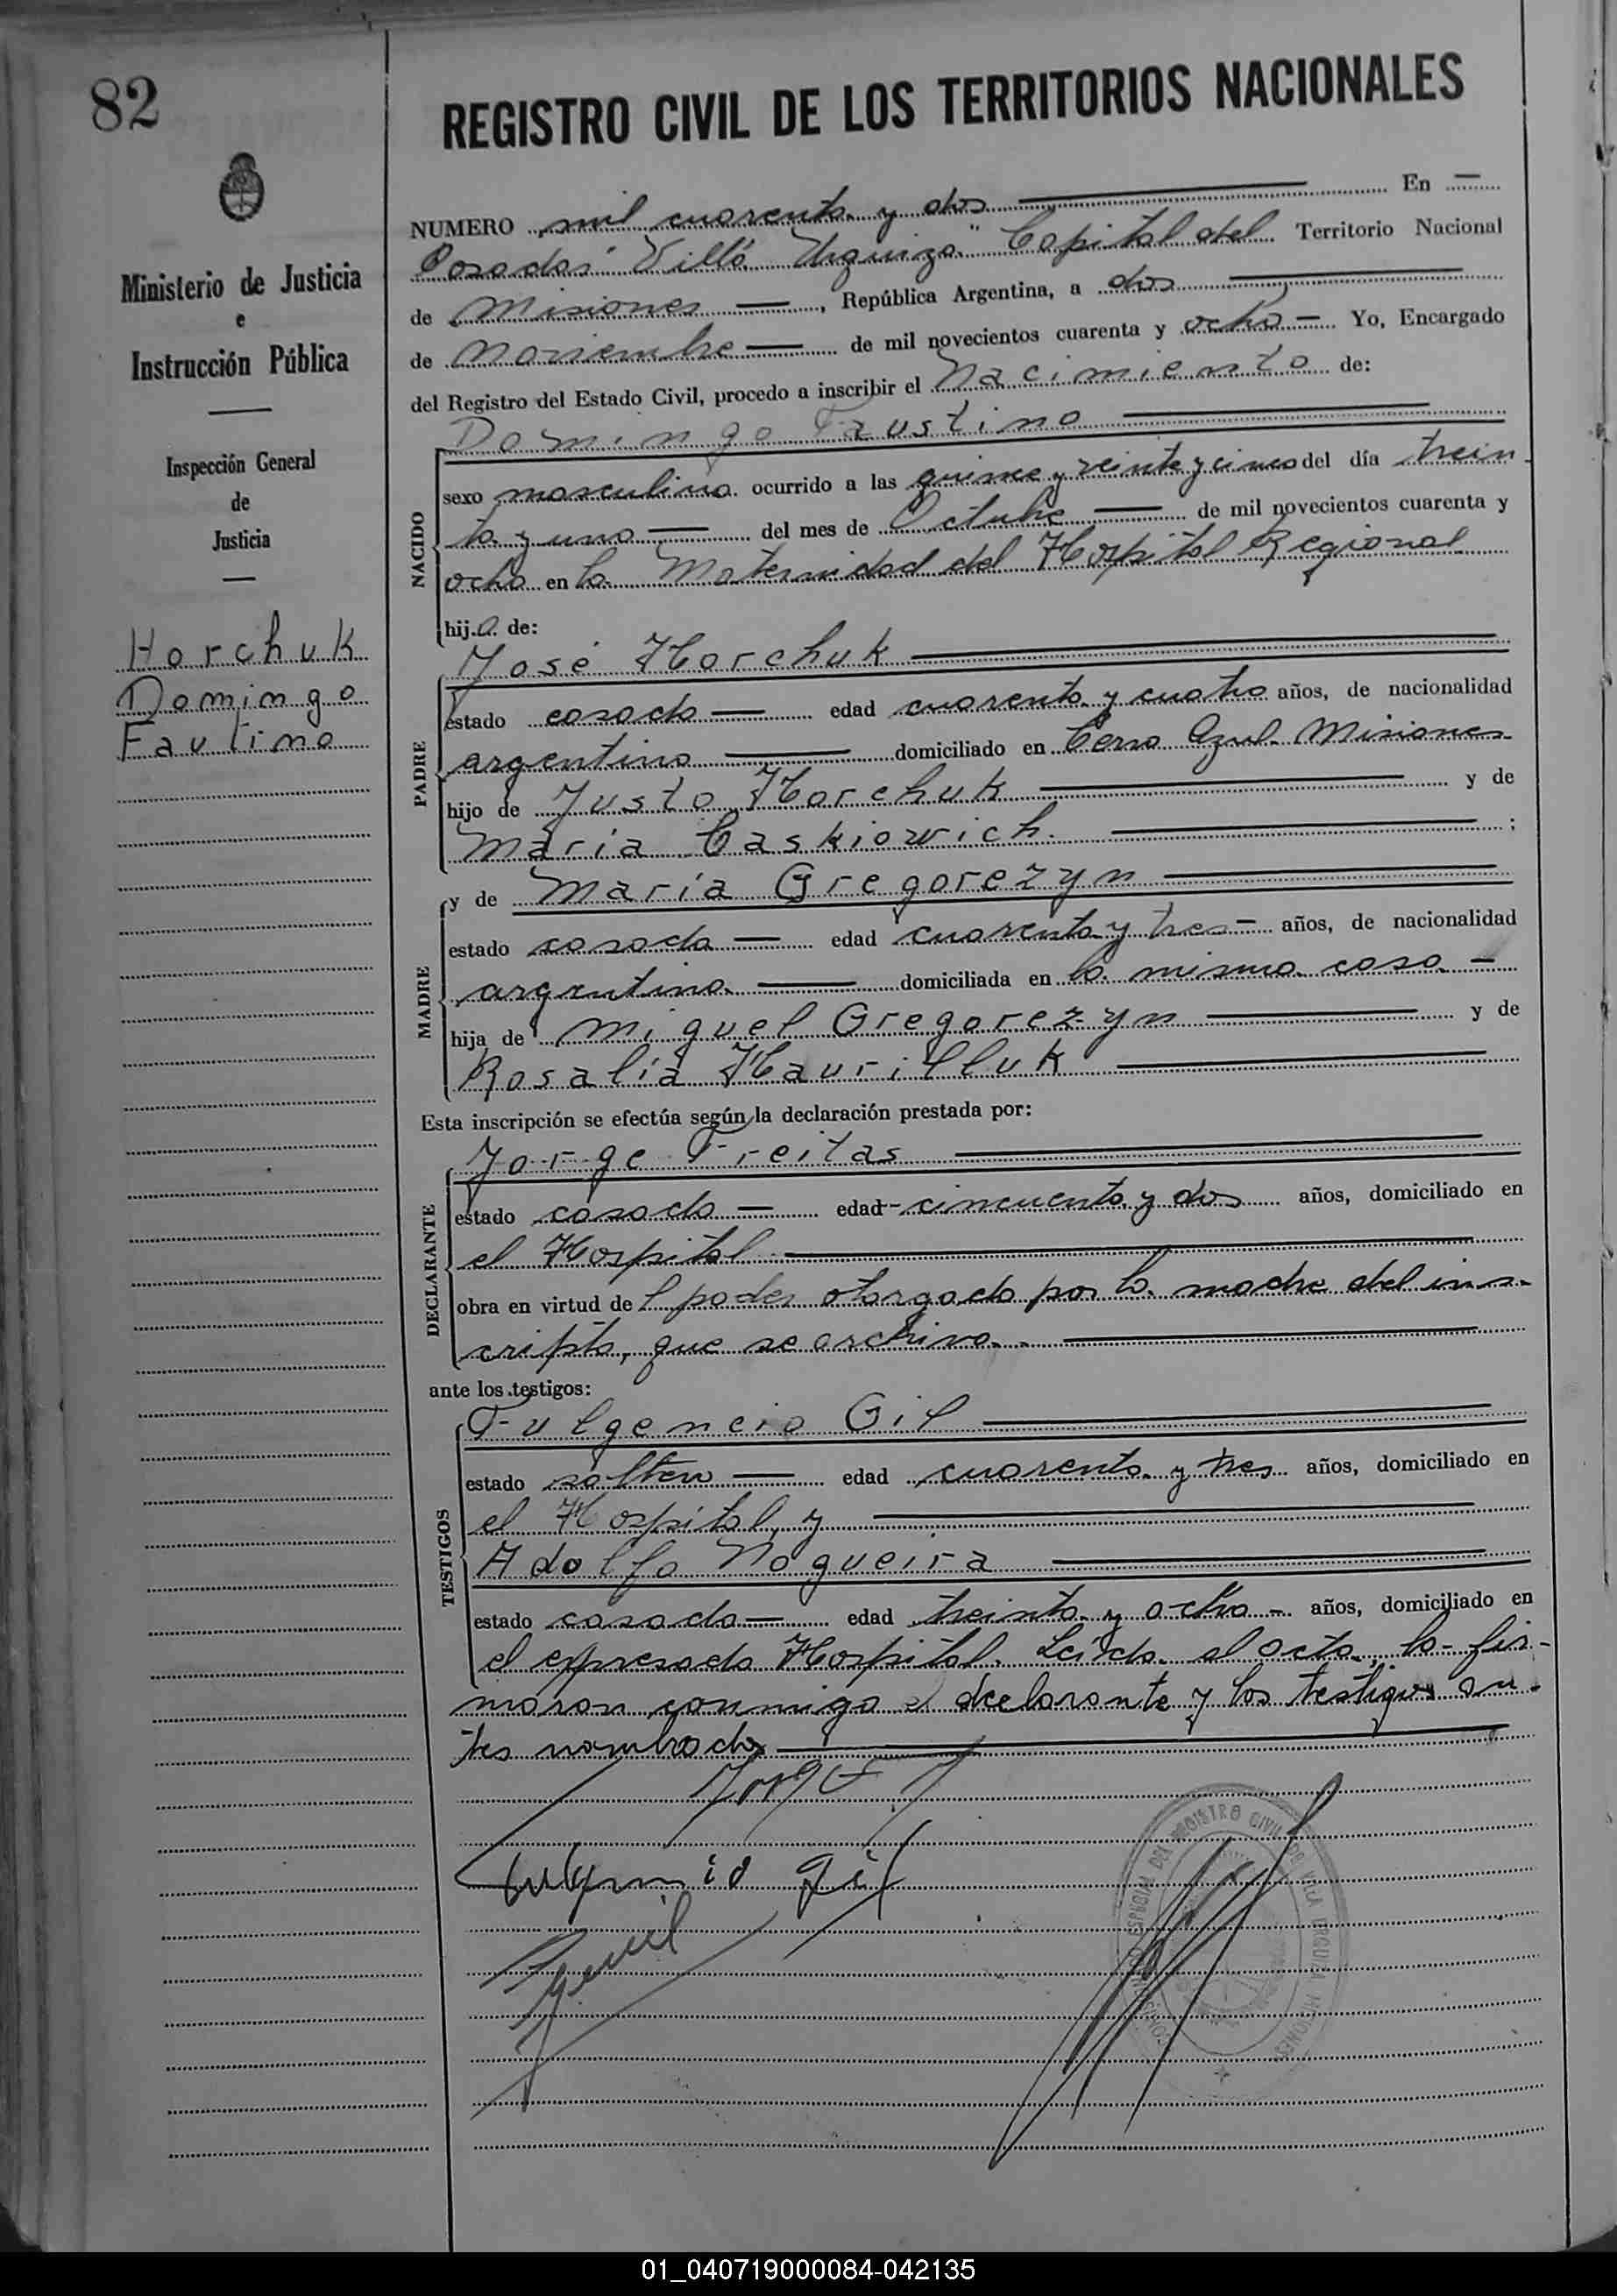 82
REGISTRO CIVIL DE LOS TERRITORIOS NACIONALES
Ministerio de Justicia
e
Instrucción Pública
Inspección General
de
Justicia
Horchuk
Domingo
Fautino
NUMERO mil cuarenta y dos En
Posadas "Villa Urquiza" Capital del Territorio Nacional
de Misiones, República Argentina, a dos
de Noviembre de mil novecientos cuarenta y ocho Yo, Encargado
del Registro del Estado Civil, procedo a inscribir el Nacimiento de:
Domingo Faustino
NACIDO
sexo masculino ocurrido a las quince y veinte y cinco del día trein
ta y uno del mes de Octubre de mil novecientos cuarenta y
ocho en la Maternidad del Hospital Regional
hijo de:
PADRE
José Horchuk
estado casado edad cuarenta y cuatro años, de nacionalidad
argentino domiciliado en Cerro Azul Misiones
hijo de Justo Horchuk y de
María Caskiowich ;
MADRE
y de María Gregorezyn
estado casada edad cuarenta y tres años, de nacionalidad
argentina domiciliada en la misma casa
hija de Miguel Gregorezyn y de
Rosalía Haurilluk
Esta inscripción se efectúa según la declaración prestada por:
DECLARANTE
Jorge Freitas
estado casado edad cincuenta y dos años, domiciliado en
el Hospital
obra en virtud del poder otorgado por la madre del ins-
cripto, que se archiva.
ante los testigos:
TESTIGOS
Fulgencio Gil
estado soltero edad cuarenta y tres años, domiciliado en
el Hospital, y
Adolfo Nogueira
estado casado edad treinta y ocho años, domiciliado en
el expresado Hospital. Leída el acta, la fir-
maron conmigo el declarante y los testigos an-
tes nombrados
Gil
REGISTRO CIVIL DE VILLA URQUIZA MISIONES
01_040719000084-042135